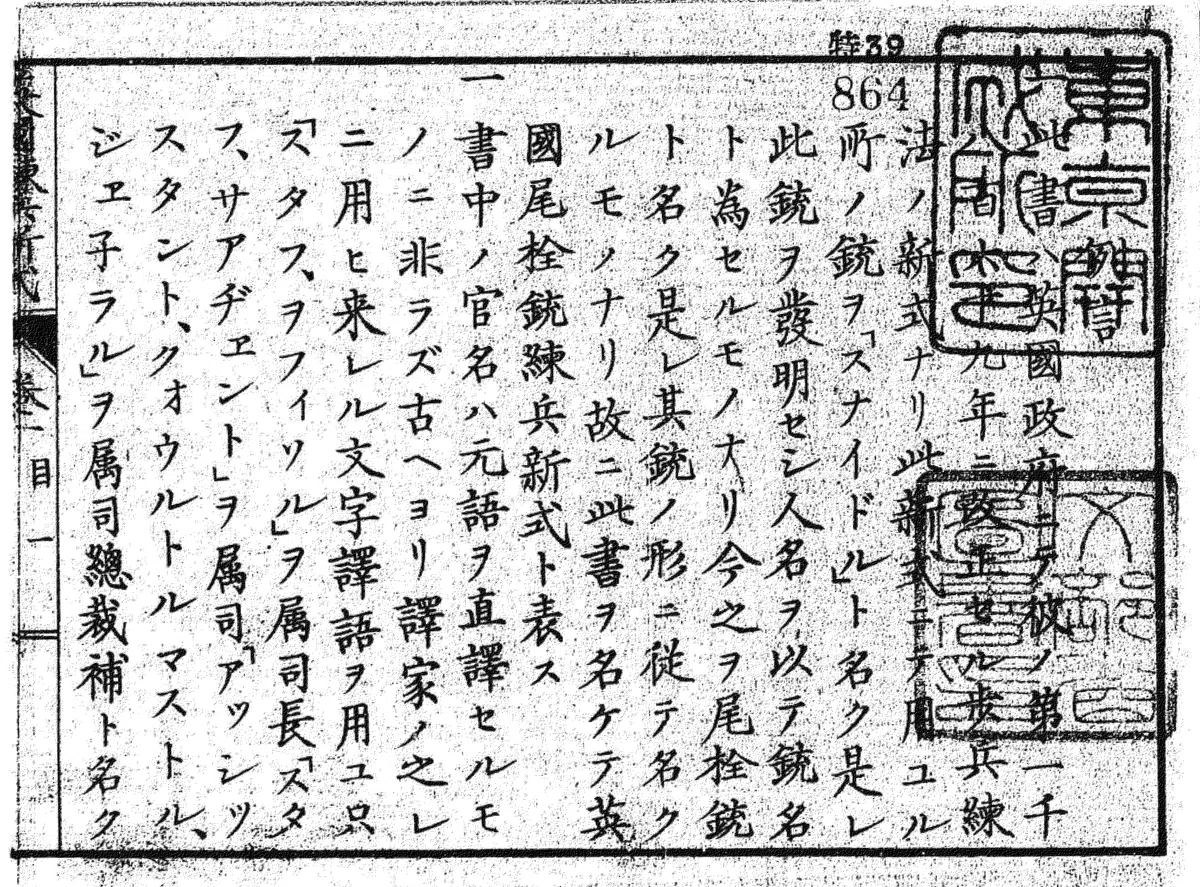 特39
864
此書ハ英國政府ニテ彼ノ第一千
八百六十九年ニ改正セル歩兵練
法ノ新式ナリ此新式ニテ用ユル
所ノ銃ヲ「スナイドル」ト名ク是レ
此銃ヲ發明セシ人名ヲ以テ銃名
ト為セルモノナリ今之ヲ尾栓銃
ト名ク是レ其銃ノ形ニ従テ名ク
ルモノナリ故ニ此書ヲ名ケテ英
國尾栓銃練兵新式ト表ス
一
書中ノ官名ハ元語ヲ直譯セルモ
ノニ非ラズ古ヘヨリ譯家ノ之レ
ニ用ヒ来レル文字譯語ヲ用ユ只
「スタフ、ヲフィソル」ヲ属司長「スタ
フ、サアヂェント」ヲ属司「アッシツ
スタント、クォウルトルマストル、
ジェ子ラル」ヲ属司總裁補ト名ク
英國練兵新式
卷一目 一